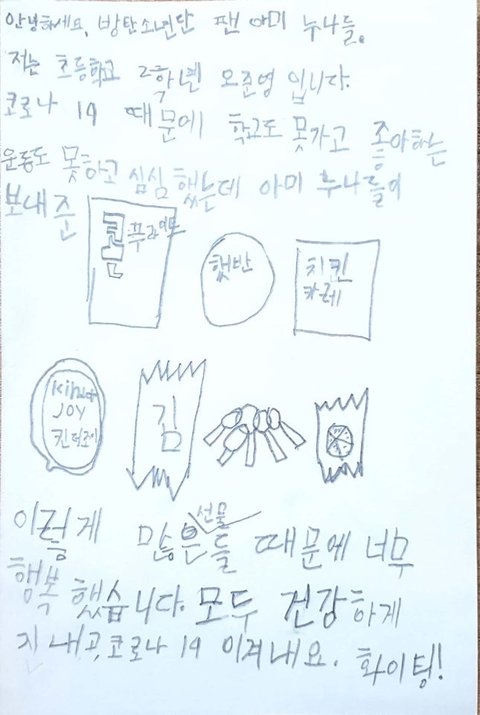 안녕하세요, 방탄소년단 팬 아미 누나들.
저는 초등학교 2학년 오준영 입니다.
코로나 19 때문에 학교도 못가고 좋아하는
운동도 못하고 심심했는데 아미 누나들이
보내준
콘푸라이트
햇반
치킨
카레
Kinder
JOY
킨더조이
김
이렇게 많은 선물들 때문에 너무
행복했습니다. 모두 건강하게
지내고, 코로나 19 이겨내요. 화이팅!